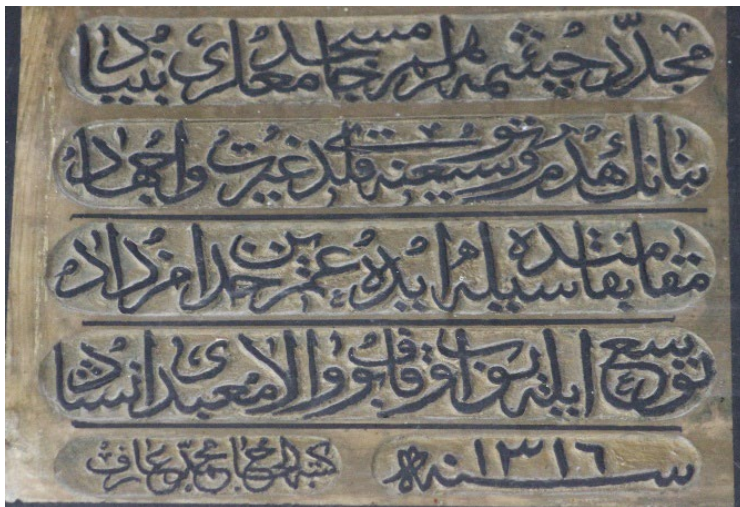 مجدّد چشمه لر هم مسجد جامعلرى بنياد
بنانك هدم و توسيعنه قلدى غيرت واجهاد
مقامنده بقاسيله ايده عمرين خدا مزداد
توسيع ايله يوب اوقاف بو والا معبدى انشاد
سنه ١٣١٦
كتبه الحاج محمد عارف